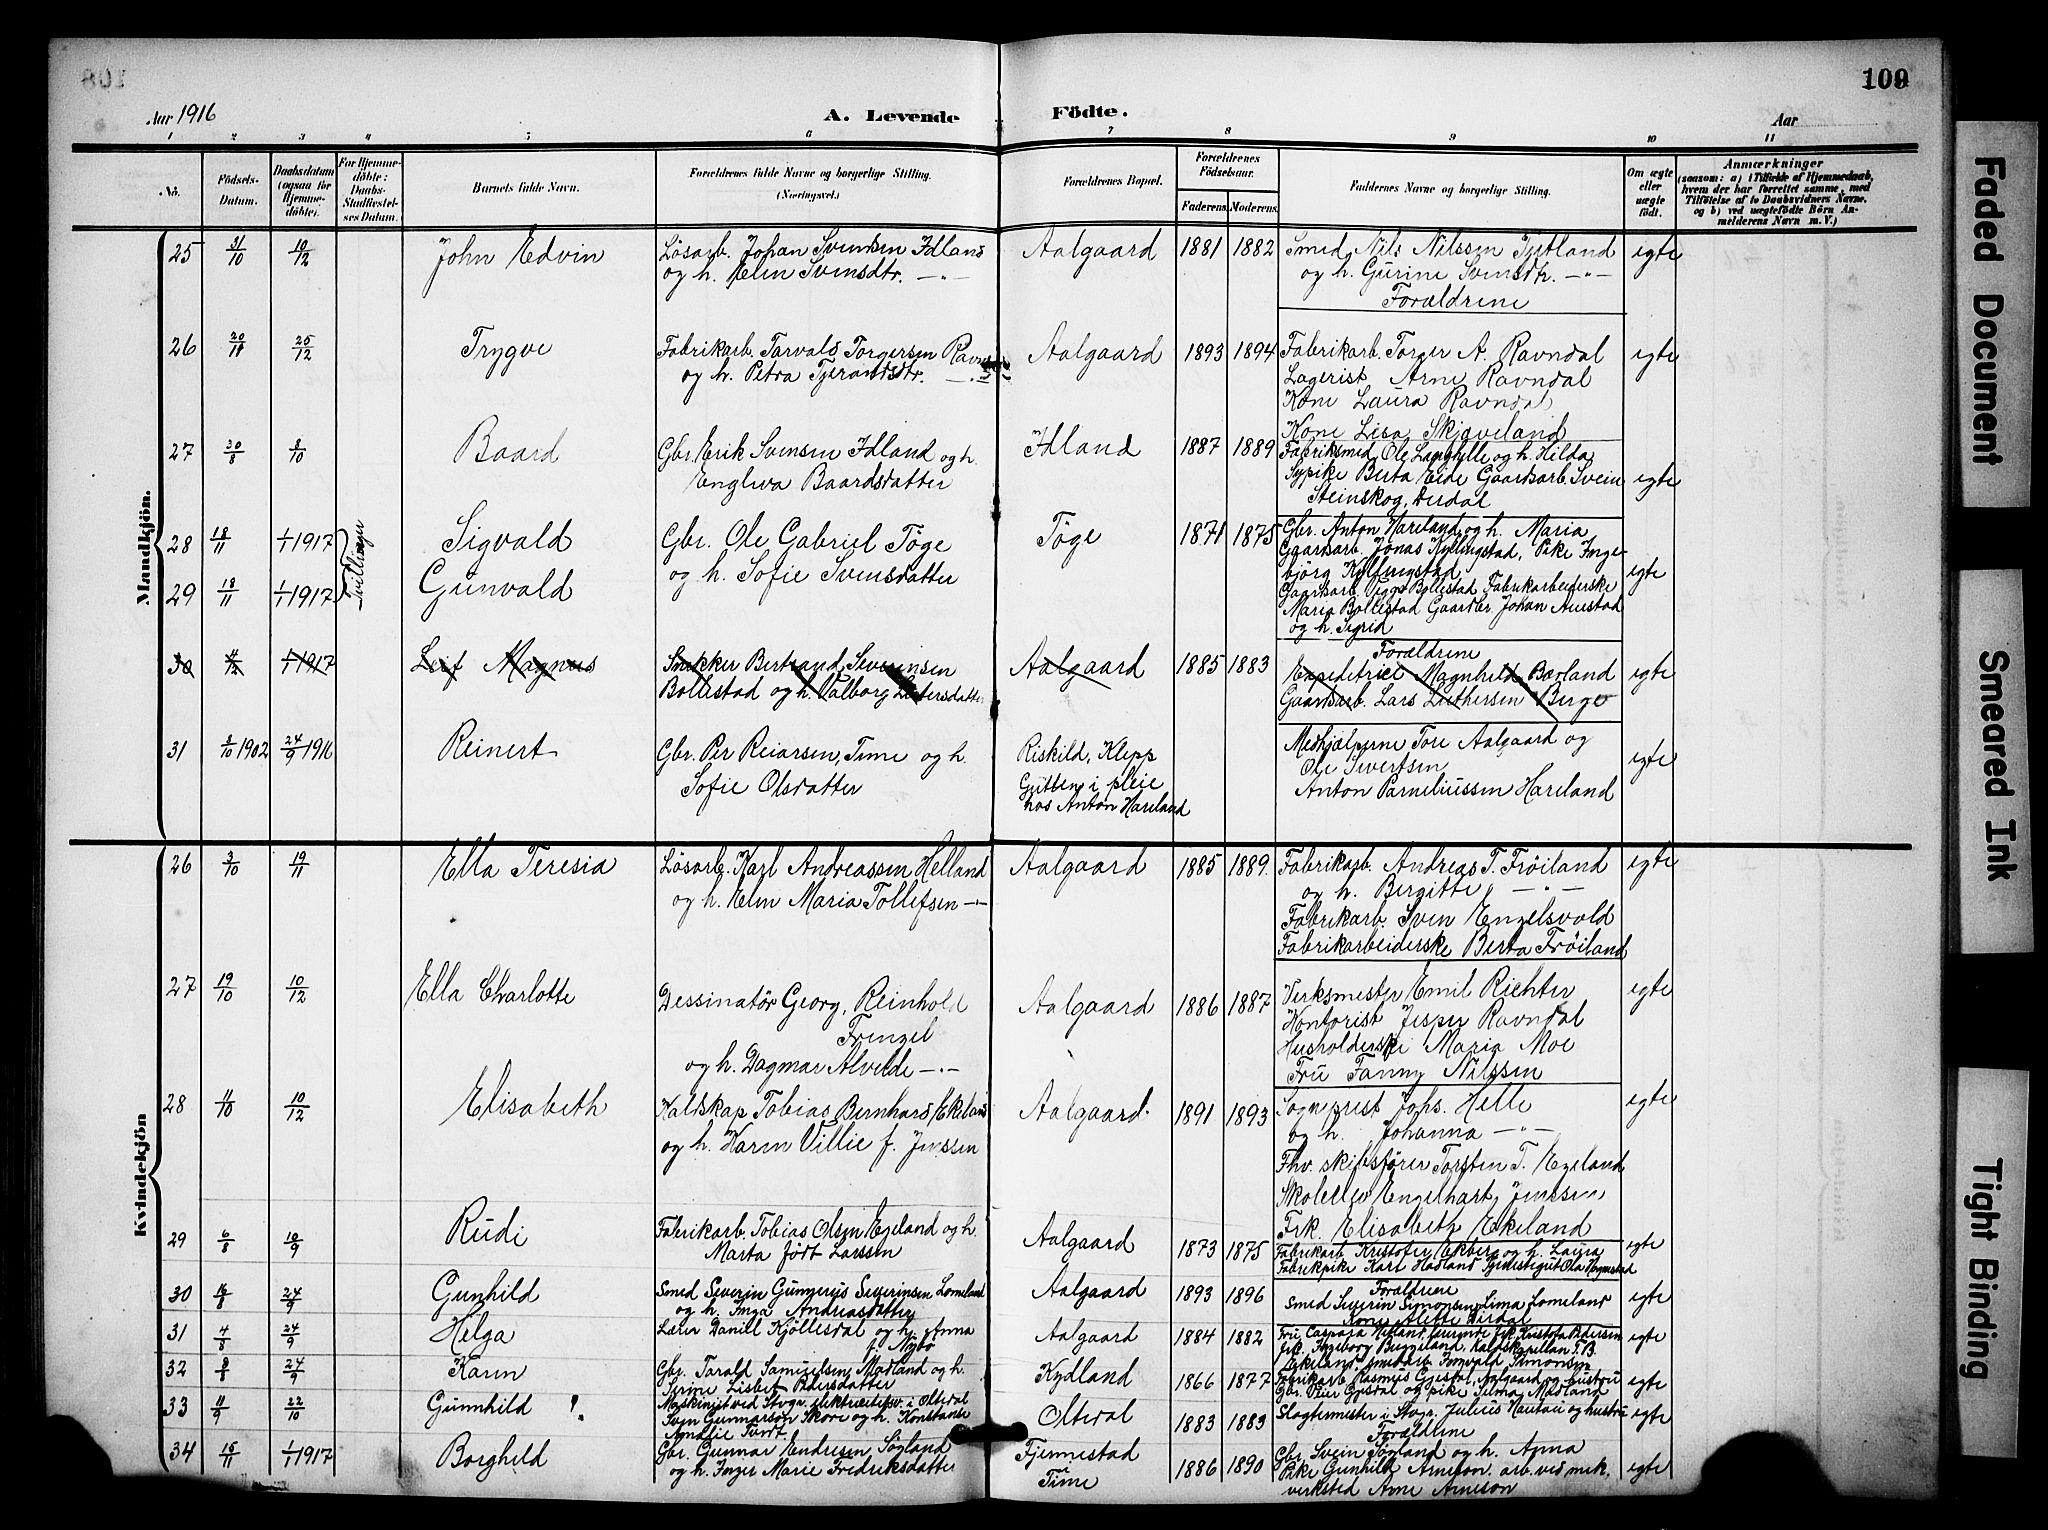 109
Aar 1916
A. Levende Födte.
Aar
1 2 3 4 5 6 7 8 9 10 11
No.
Födsels-Datum.
Daabsdatum (ogsaa for Hjemme-döbte).
For Hjemme-döbte: Daabs-Stadfæstel-ses Datum.
Barnets fulde Navn.
Forældrenes fulde Navne og borgerlige Stilling. (Næringsvei.)
Forældrenes Bopæl.
Forældrenes Födselsaar.
Faderens. Moderens.
Faddernes Navne og borgerlige Stilling.
Om ægte eller uægte födt.
Anmærkninger
(saasom: a) i Tilfælde af Hjemmedaab, hvem der har forrettet samme, med Tilföielse af to Daabsvidners Navne, og b) ved uægtefödte Börn Anmelderens Navn m. V.)
Mandkjön.
25 31/10 10/12 John Edvin
Løsarb. Johan Svendsen Idland
og h. Elen Svensdtr. -"-
Aalgaard 1881 1882
Smed Nils Nilssen Tjetland
og h. Gurine Svensdtr. -"-
Forældrene
egte
26 20/11 25/12 Trygve
Fabrikarb. Torvald Torgersen
og h. Petra Tjerandsdtr. -"-
Aalgaard 1893 1894
Fabrikarb. Torger A. Ravndal
Lagerist Arne Ravndal
Kone Laura Ravndal
Kone Lisa Skjæveland
egte
27 30/8 8/10 Baard
Gbr. Erik Svensen Idland og h.
Engleva Baardsdatter
Idland 1887 1889
Fabriksmed Ole Langhelle og h. Hilda
Sypike Berta Eide Gaardsarb. Svein
Steinskog, Dirdal
egte
28 18/11 1/1 1917 Sigvald
29 18/11 1/1 1917 Gunvald
Tvillinger
Gbr. Ole Gabriel Tøge
og h. Sofie Svensdatter
Tøge 1871 1875
Gbr. Anton Hareland og h. Maria
Gaardsarb. Jonas Kyllingstad, Pike Inge-
bjørg Kyllingstad
Gaardsarb. Viggo Bollestad Fabrikarbeiderske
Maria Bollestad Gaardbr. Johan Auestad
og h. Sigrid
egte
30 1/1 1917 Leif Magnus
Snekker Bertrand Severinsen
Bollestad og h. Valborg
Aalgaard 1885 1883
Forældrene
Expeditrice Magnhild Børland
Gaardsarb. Lars Luthersen Birge
egte
31 3/10 1902 24/9 1916 Reinert
Gbr. Per Reiarsen, Time og h.
Sofie Olsdatter
Riskild, Klepp
Gutten i pleie
hos Anton Hareland
Medhjælperne Tore Aalgaard og
Ole Sivertsen
Anton Parneliussen Hareland
egte
Kvindekjön
26 3/10 19/11 Ella Teresia
Løsarb. Karl Andreassen Helland
og h. Elen Maria Tollefsen -"-
Aalgaard 1885 1889.
Fabrikarb. Andreas T. Frøiland
og h. Birgitte -"-
Fabrikarb. Sven Engelsvold
Fabrikarbeiderske Berta Frøiland
egte
27 19/10 10/12 Ella Charlotte
Dessinatør Georg, Reinhold
Frenzel
og h. Dagmar Alvilde -"-
Aalgaard 1886 1887
Verksmester Emil Richter
Kontorist Jesper Ravndal
Husholderske Maria Moe
Fru Fanny Nilssen
egte
28 11/10 10/12 Elisabeth
Kaldskap Tobias Bernhard Ekeland
og h. Karen Villie f. Jenssen
Aalgaard. 1891 1893
Sogneprest Johs. Helle
og h. Johanna -"-
Fhv. skibsfører Torsten T. Egeland
Skoleelev Engelhart Jenssen
Frk. Elisabeth Ekeland
egte
29 6/8 10/9 Rudi
Fabrikarb. Tobias Olsen Egeland og h.
Marta født Larssen
Aalgaard 1873 1875
Fabrikarb. Kristofer Ekberg og h. Laura
Fabrikpike Kari Hadland Tjenestegut Ola
egte
30 16/8 24/9 Gunhild
Smed Severin Gunnerius Severinsen Lomeland
og h. Inga Andreasdatter
Aalgaard 1893 1896
Forældrene
Smed Severin Simonsen Lima Lomeland
Kone Alette Dirdal
egte
31 4/8 24/9 Helga
Lærer Daniel Kjøllesdal og h. Anna
f. Nybø
Aalgaard 1884 1882
Frk. Ingeborg Kaldskapellan T.B.
Ekeland, smedarb. Ingvald Simonsen
egte
32 8/8 24/9 Karen
Gbr. Tarald Samuelsen Madland og h.
Serine Lisbet Pedersdatter
Kydland 1866 1877
Fabrikarb. Rasmus Gjesdal, Aalgaard og hustru
Gbr. Peier Gjesdal og pike Selma Madland
egte
33 11/9 22/10 Gunnhild
Maskinist ved Stvgr. elektricitetsv. i Oltedal
Sven Gunnarson Skore og h. Konstanse
Amalie Tvedt
Oltedal 1883 1883
Slagtermester i Stvgr. Julius Hautau og hustru
Forældrene
egte
34 15/11 1/1 1917 Borghild
Gbr. Gunnar Endresen Søyland
og h. Inger Marie Fredriksdatter
Fjermestad
i
Time
1886 1890
Gbr. Svein Søyland og h. Anna
Pike Gunhild Arneson. arb. ved mek.
verksted Arne Arneson
egte
Faded Document
Smeared Ink
Tight Binding